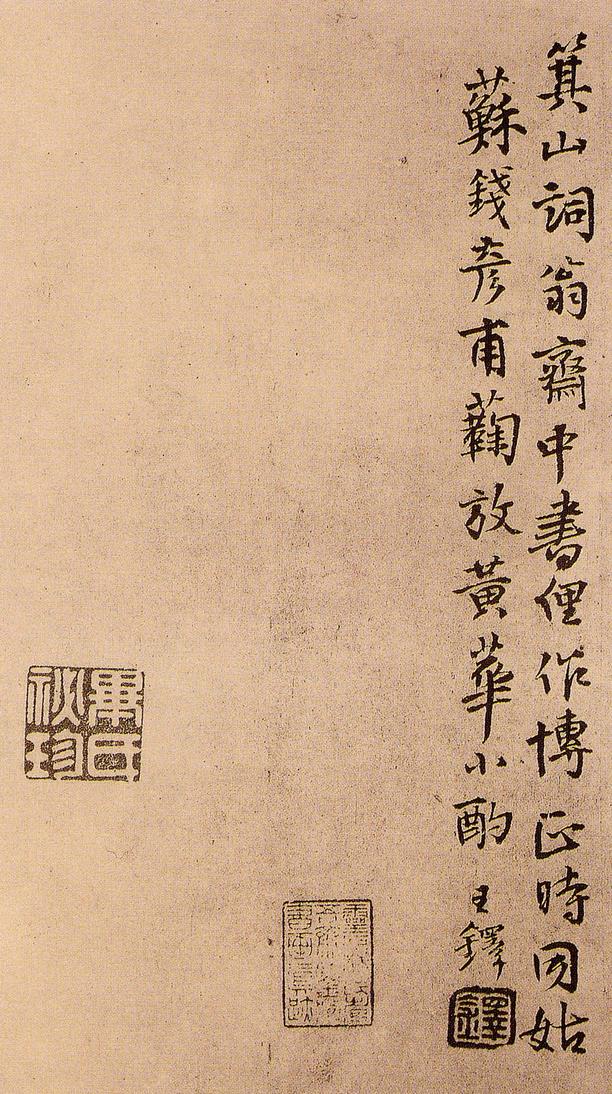 箕山詞翁齋中書俚作博正時同姑
蘇錢彥甫蘜放黃華小酌
王鐸
鐸
畢氏
秘珍